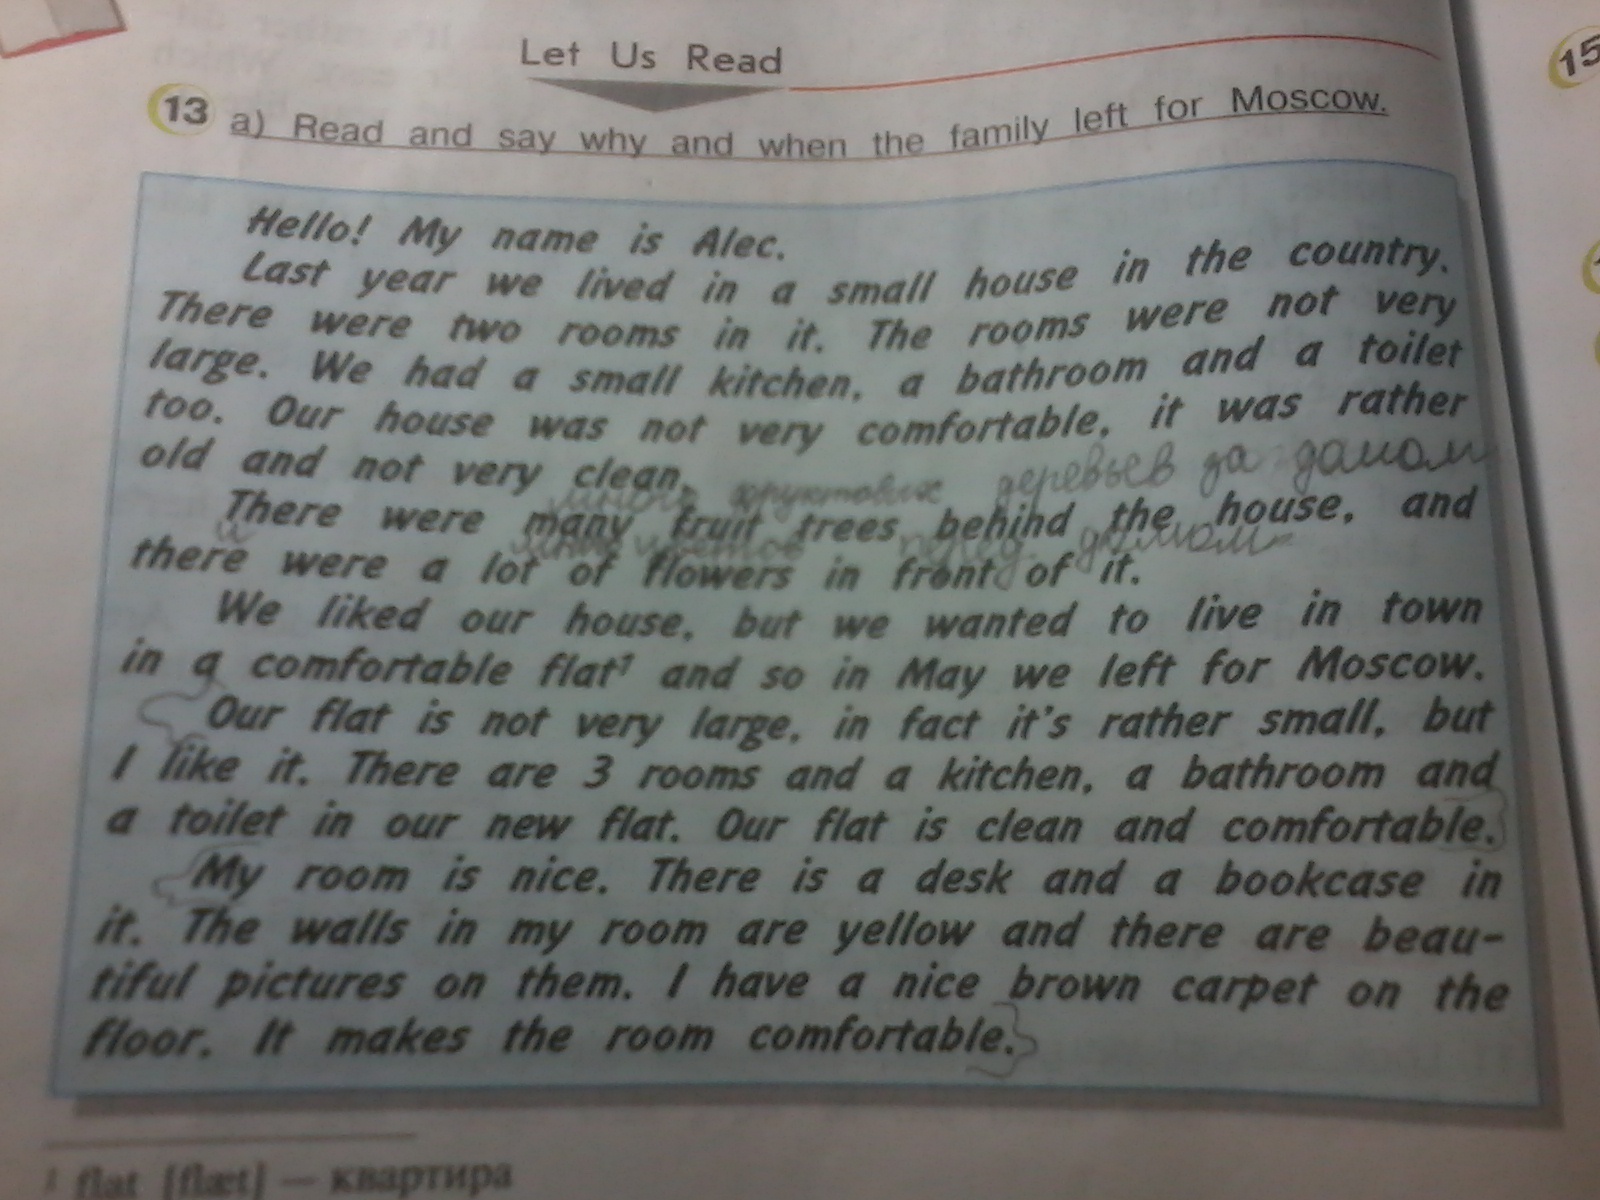 Let Us Read
13 a) Read and say why and when the family left for Moscow.
15
Hello! My name is Alec.
Last year we lived in a small house in the country.
There were two rooms in it. The rooms were not very
large. We had a small kitchen, a bathroom and a toilet
too. Our house was not very comfortable, it was rather
old and not very clean.
много фруктовых деревьев за домом
There were many fruit trees behind the house, and
и много цветов перед домом
there were a lot of flowers in front of it.
We liked our house, but we wanted to live in town
in a comfortable flat¹ and so in May we left for Moscow.
Our flat is not very large, in fact it's rather small, but
I like it. There are 3 rooms and a kitchen, a bathroom and
a toilet in our new flat. Our flat is clean and comfortable.
My room is nice. There is a desk and a bookcase in
it. The walls in my room are yellow and there are beau-
tiful pictures on them. I have a nice brown carpet on the
floor. It makes the room comfortable.
¹ flat [flæt] — квартира